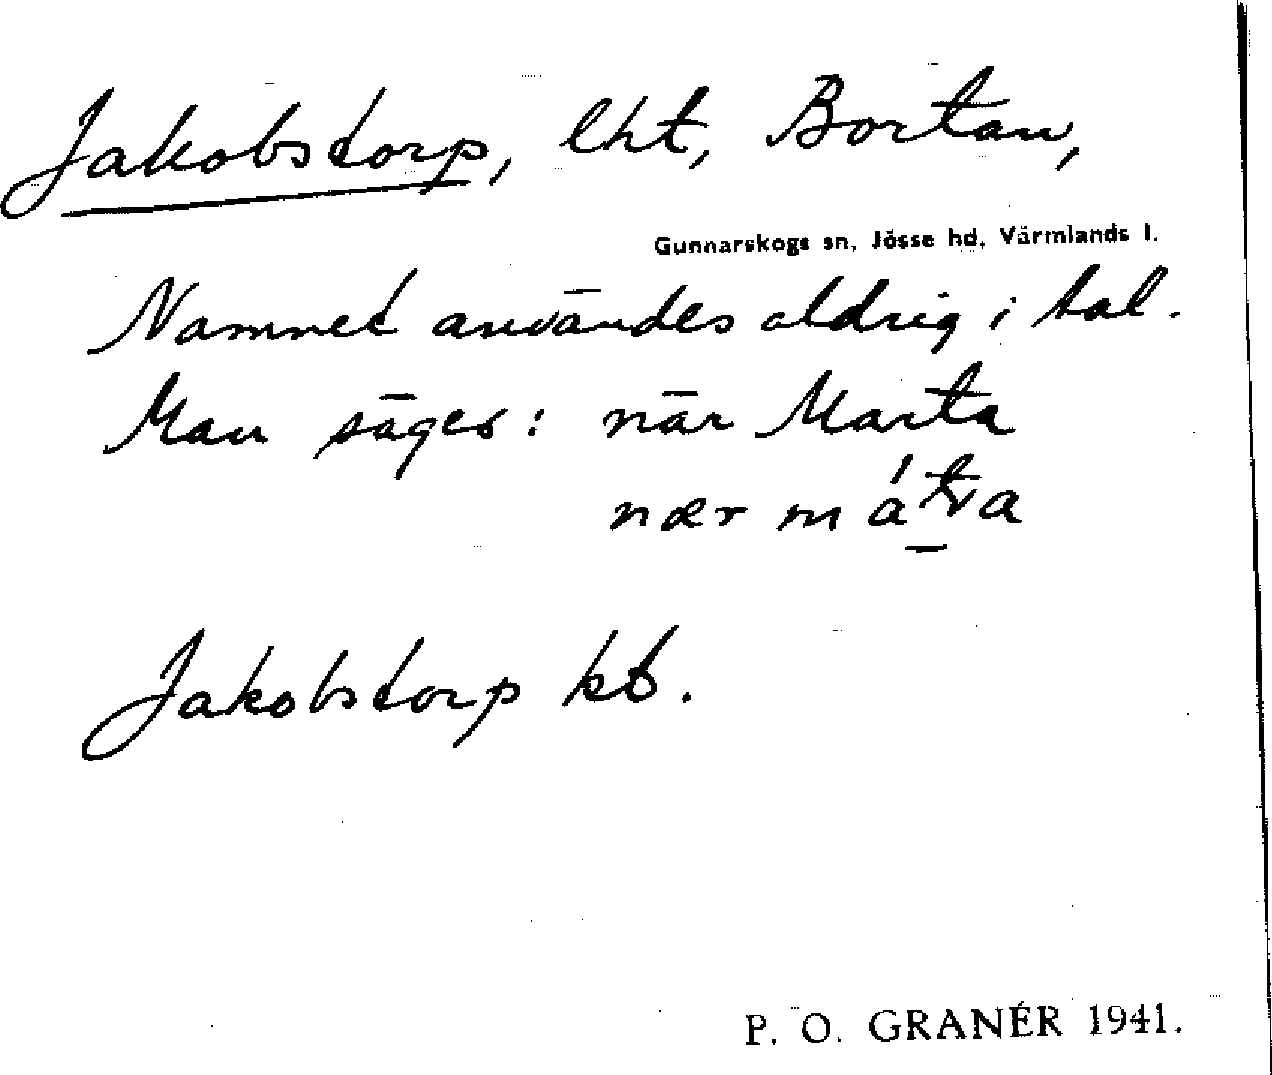 Jakobstorp, lht, Bortan,
Gunnarskogs sn, Jösse hd, Värmlands l.
Namnet användes aldrig i tal.
Man säger: när Marta
nær
Jakobstorp kb.
P. O. GRANÉR 1941.